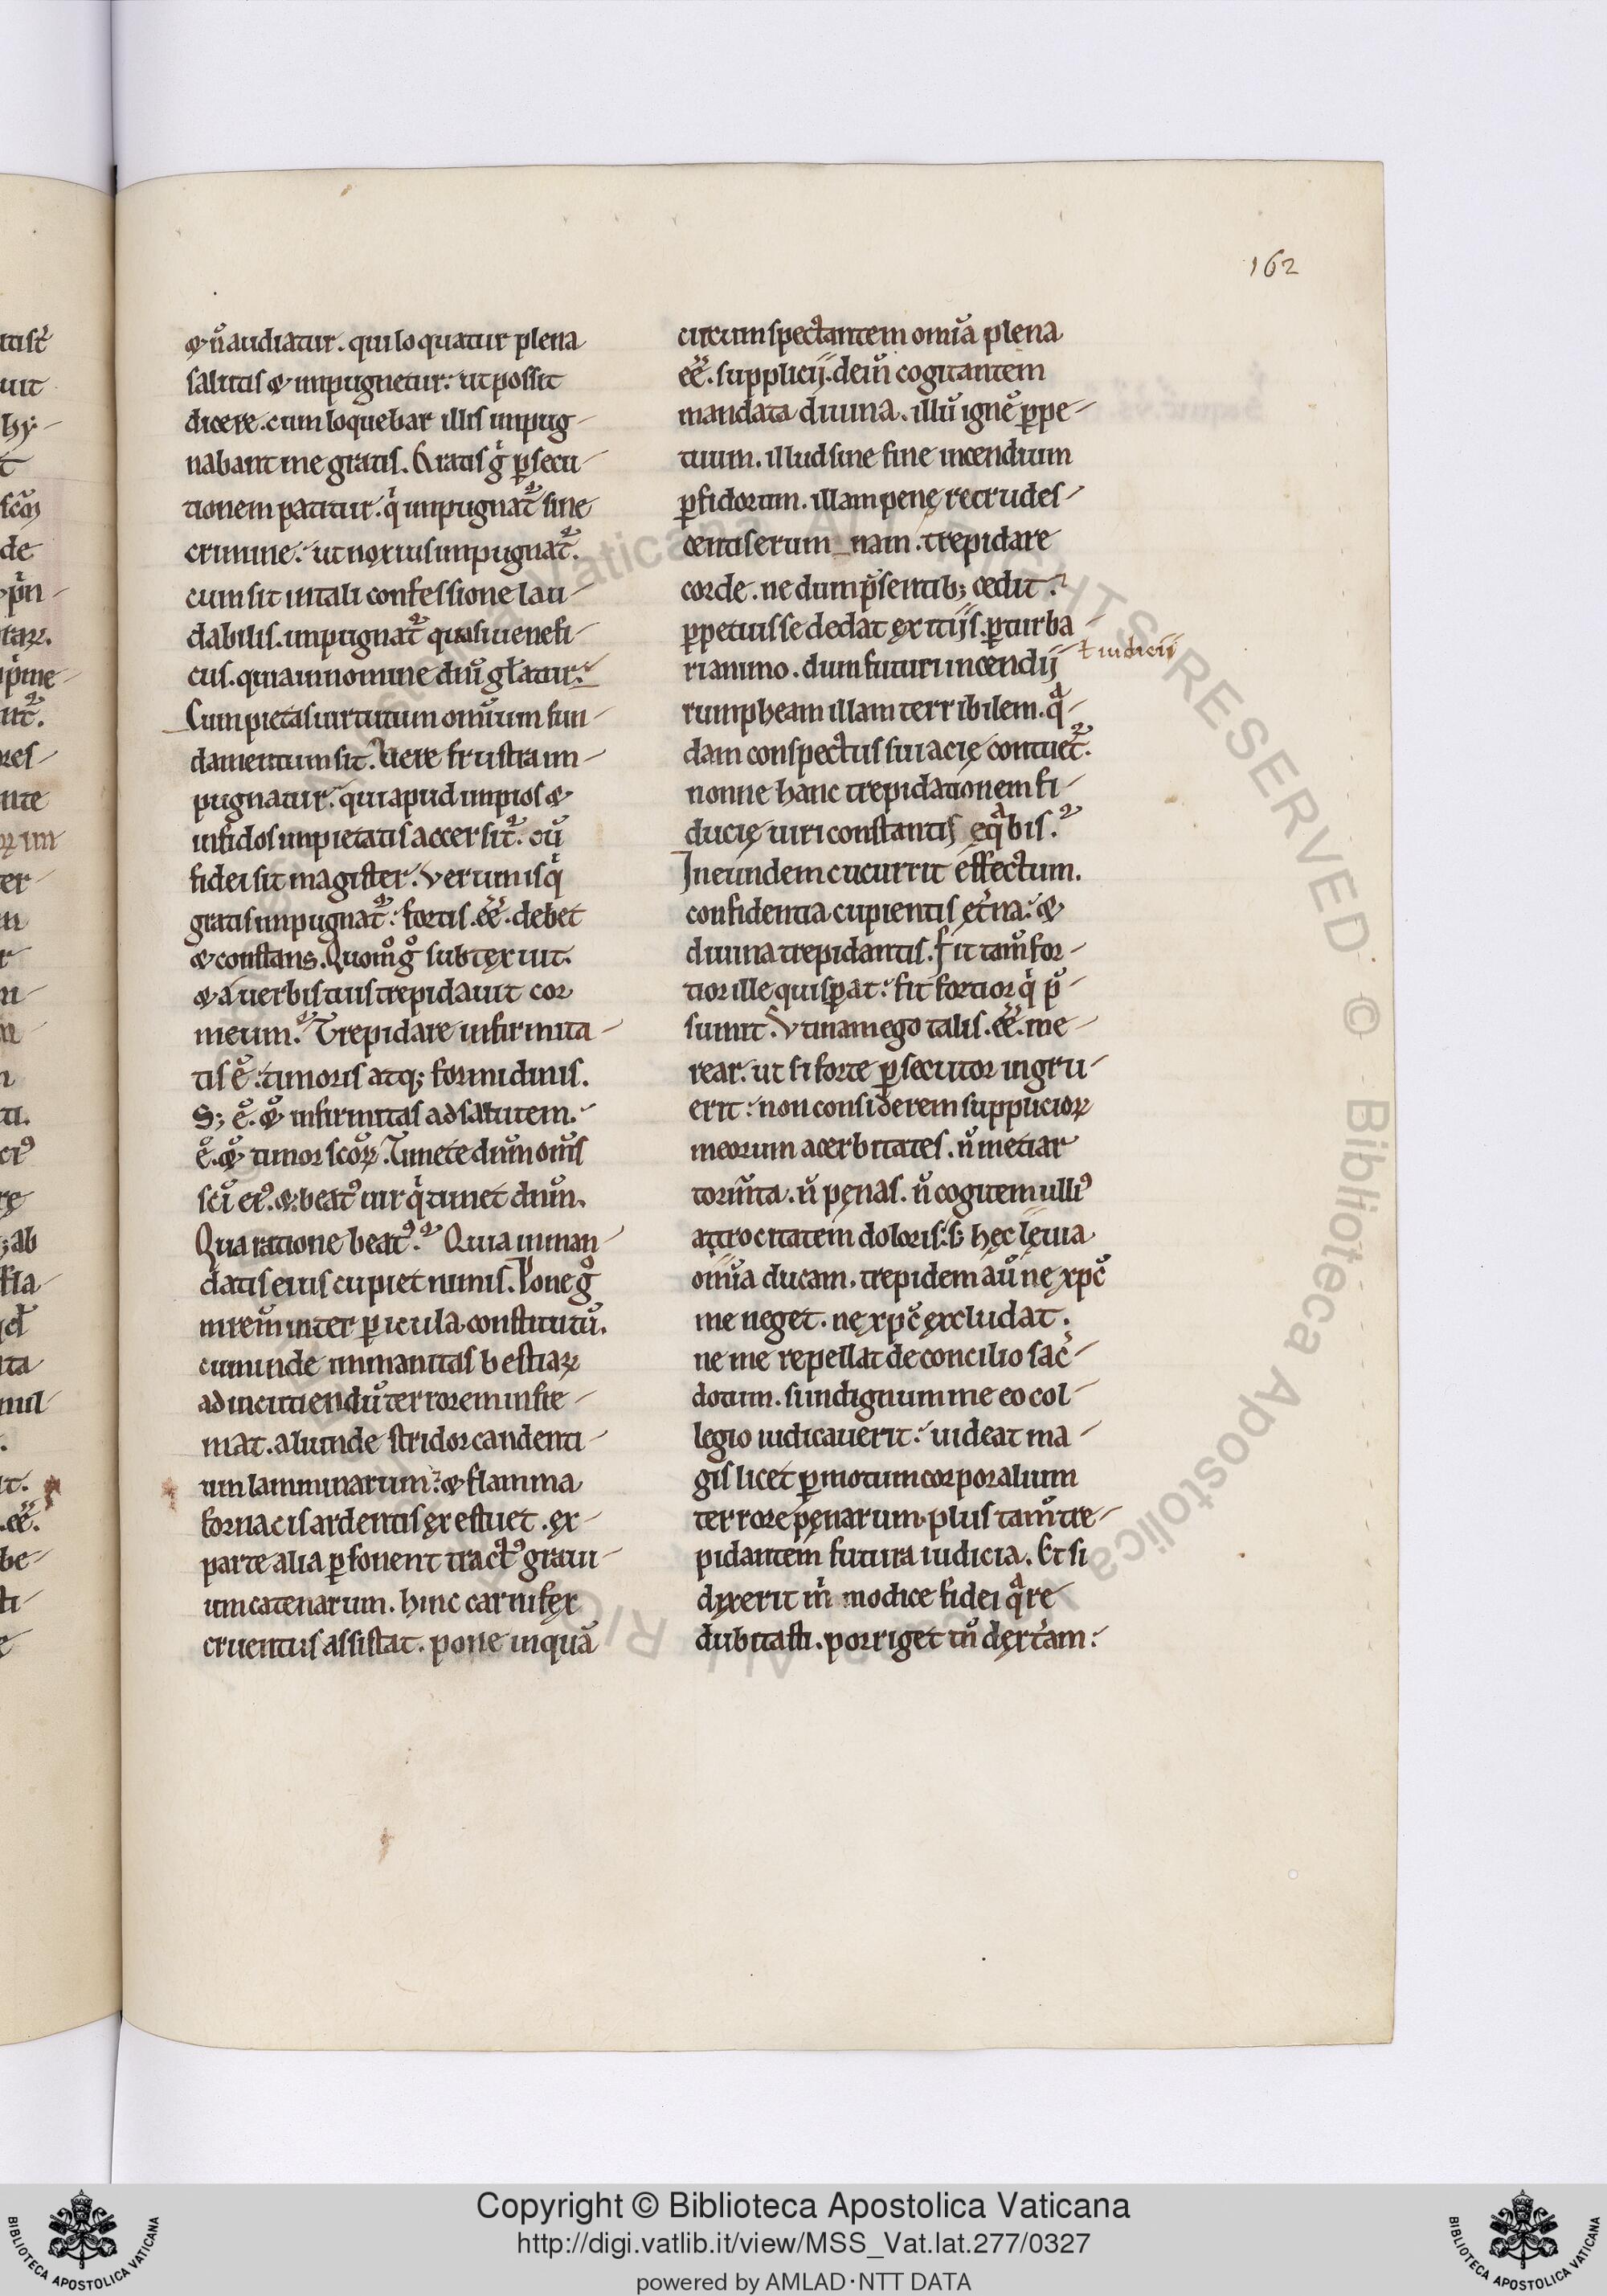 162
& n̄ audiatur. qui loquatur plena
salutis & impugnetur: ut possit
dicere. cum loquebar illis impug-
nabant me gratis. Gratis gͥ p̱secu-
tionem patitur. qͥ impugnat᷑ sine
crimine: ut noxius impugnat᷑.
cum sit in tali confessione lau-
dabilis. impugnat᷑ quasi uenefi-
cus. quia in nomine dn̄i gl̄atur:
Cum pietas uirtutum omīum fun-
damentum sit. Vere frustra im-
pugnatur. qui apud impios &
infidos impietatis accersit᷑. cū
fidei sit magister. Verum is qͥ
gratis impugnat᷑: fortis. ēē. debet
& constans. Quom̊ gͦ subtexuit.
& a uerbis tuis trepidauit cor
meum? Trepidare infirmita-
tis ē: timoris atq; formidinis.
S; ē. & infirmitas ad salutem.
ē. & timor scōꝝ. Timete dn̄m om̄s
sc̄i eiꝰ. & beatꝰ uir qͥ timet dn̄m.
Qua ratione beatꝰ? Quia in man-
datis eius cupiet nimis. Pone gͦ
mr̄em inter pericula constitutū.
cum inde immanitas bestiaꝝ
ad incutiendū terrorem infre-
mat. aliunde stridor candenti-
um lamminarum: & flamma
fornacis ardentis exestuet. ex
parte alia p̱sonent tractꝰ graui-
um catenarum. hinc carnifex
cruentus assistat. pone inquā
circumspectantem omīa plena
ēē. supplicii. dein̄ cogitantem
mandata diuina. illū ignē p̱pe-
tuum. illud sine fine incendium
p̱fidorum. illam penę recrudes-
centis erum_nam. trepidare
corde. ne dum p̄sentib; cedit?
p̱petuis se dedat exitiis. p̱turba-
ri animo. dum futuri incendii
ł iudicii
rumpheam illam terribilem. qͣ-
dam conspectus sui acię contuet᷑.
nonne hanc trepidationem fi-
ducię uiri constantis eqͣbis?
In eundem cucurrit effectum.
confidentia cupientis et̄na: &
diuina trepidantis. Fit tam̄ for-
tior ille qui sp̱at: fit fortior qͥ p̄-
sumit. Utinam ego talis. ēē. me-
rear. ut si forte p̱secutor ingru-
erit: non considerem suppliciorꝝ
meorum acerbitates. n̄ metiar
torm̄ta. n̄ pęnas. n̄ cogitem ulliꝰ
atrocitatem doloris: s; hęc lęuia
omīa ducam. trepidem aū ne xp̄c
me neget. ne xp̄c excludat.
ne me repellat de concilio sac̄-
dotum. si indignum me eo col-
legio iudicauerit: uideat ma-
gis licet p̱motum corporalium
terrore pęnarum. plus tam̄ tre-
pidantem futura iudicia. Et si
dixerit m̊ modice fidei qͣre
dubitasti. porriget tn̄ dext̄am:
Copyright © Biblioteca Apostolica Vaticana
http://digi.vatlib.it/view/MSS_Vat.lat.277/0327
powered by AMLAD·NTT DATA